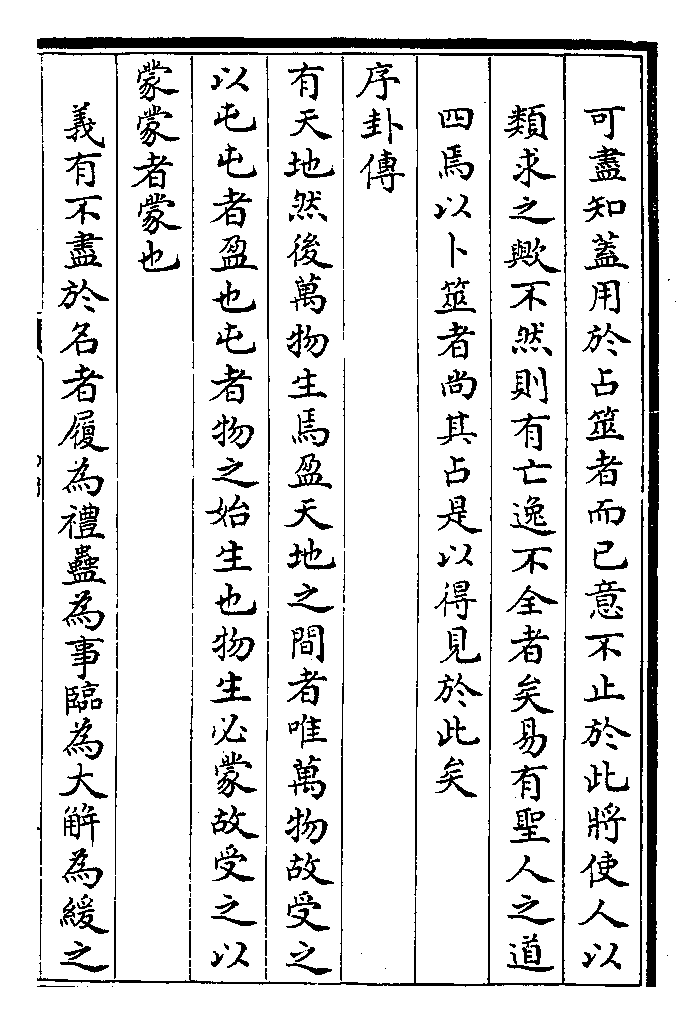 可盡知蓋用於占筮者而已意不止於此將使人以
類求之歟不然則有亡逸不全者矣易有聖人之道
四焉以卜筮者尚其占是以得見於此矣
序卦傳
有天地然後萬物生焉盈天地之間者唯萬物故受之
以屯屯者盈也屯者物之始生也物生必蒙故受之以
蒙蒙者蒙也
義有不盡於名者履為禮蠱為事臨為大解為緩之